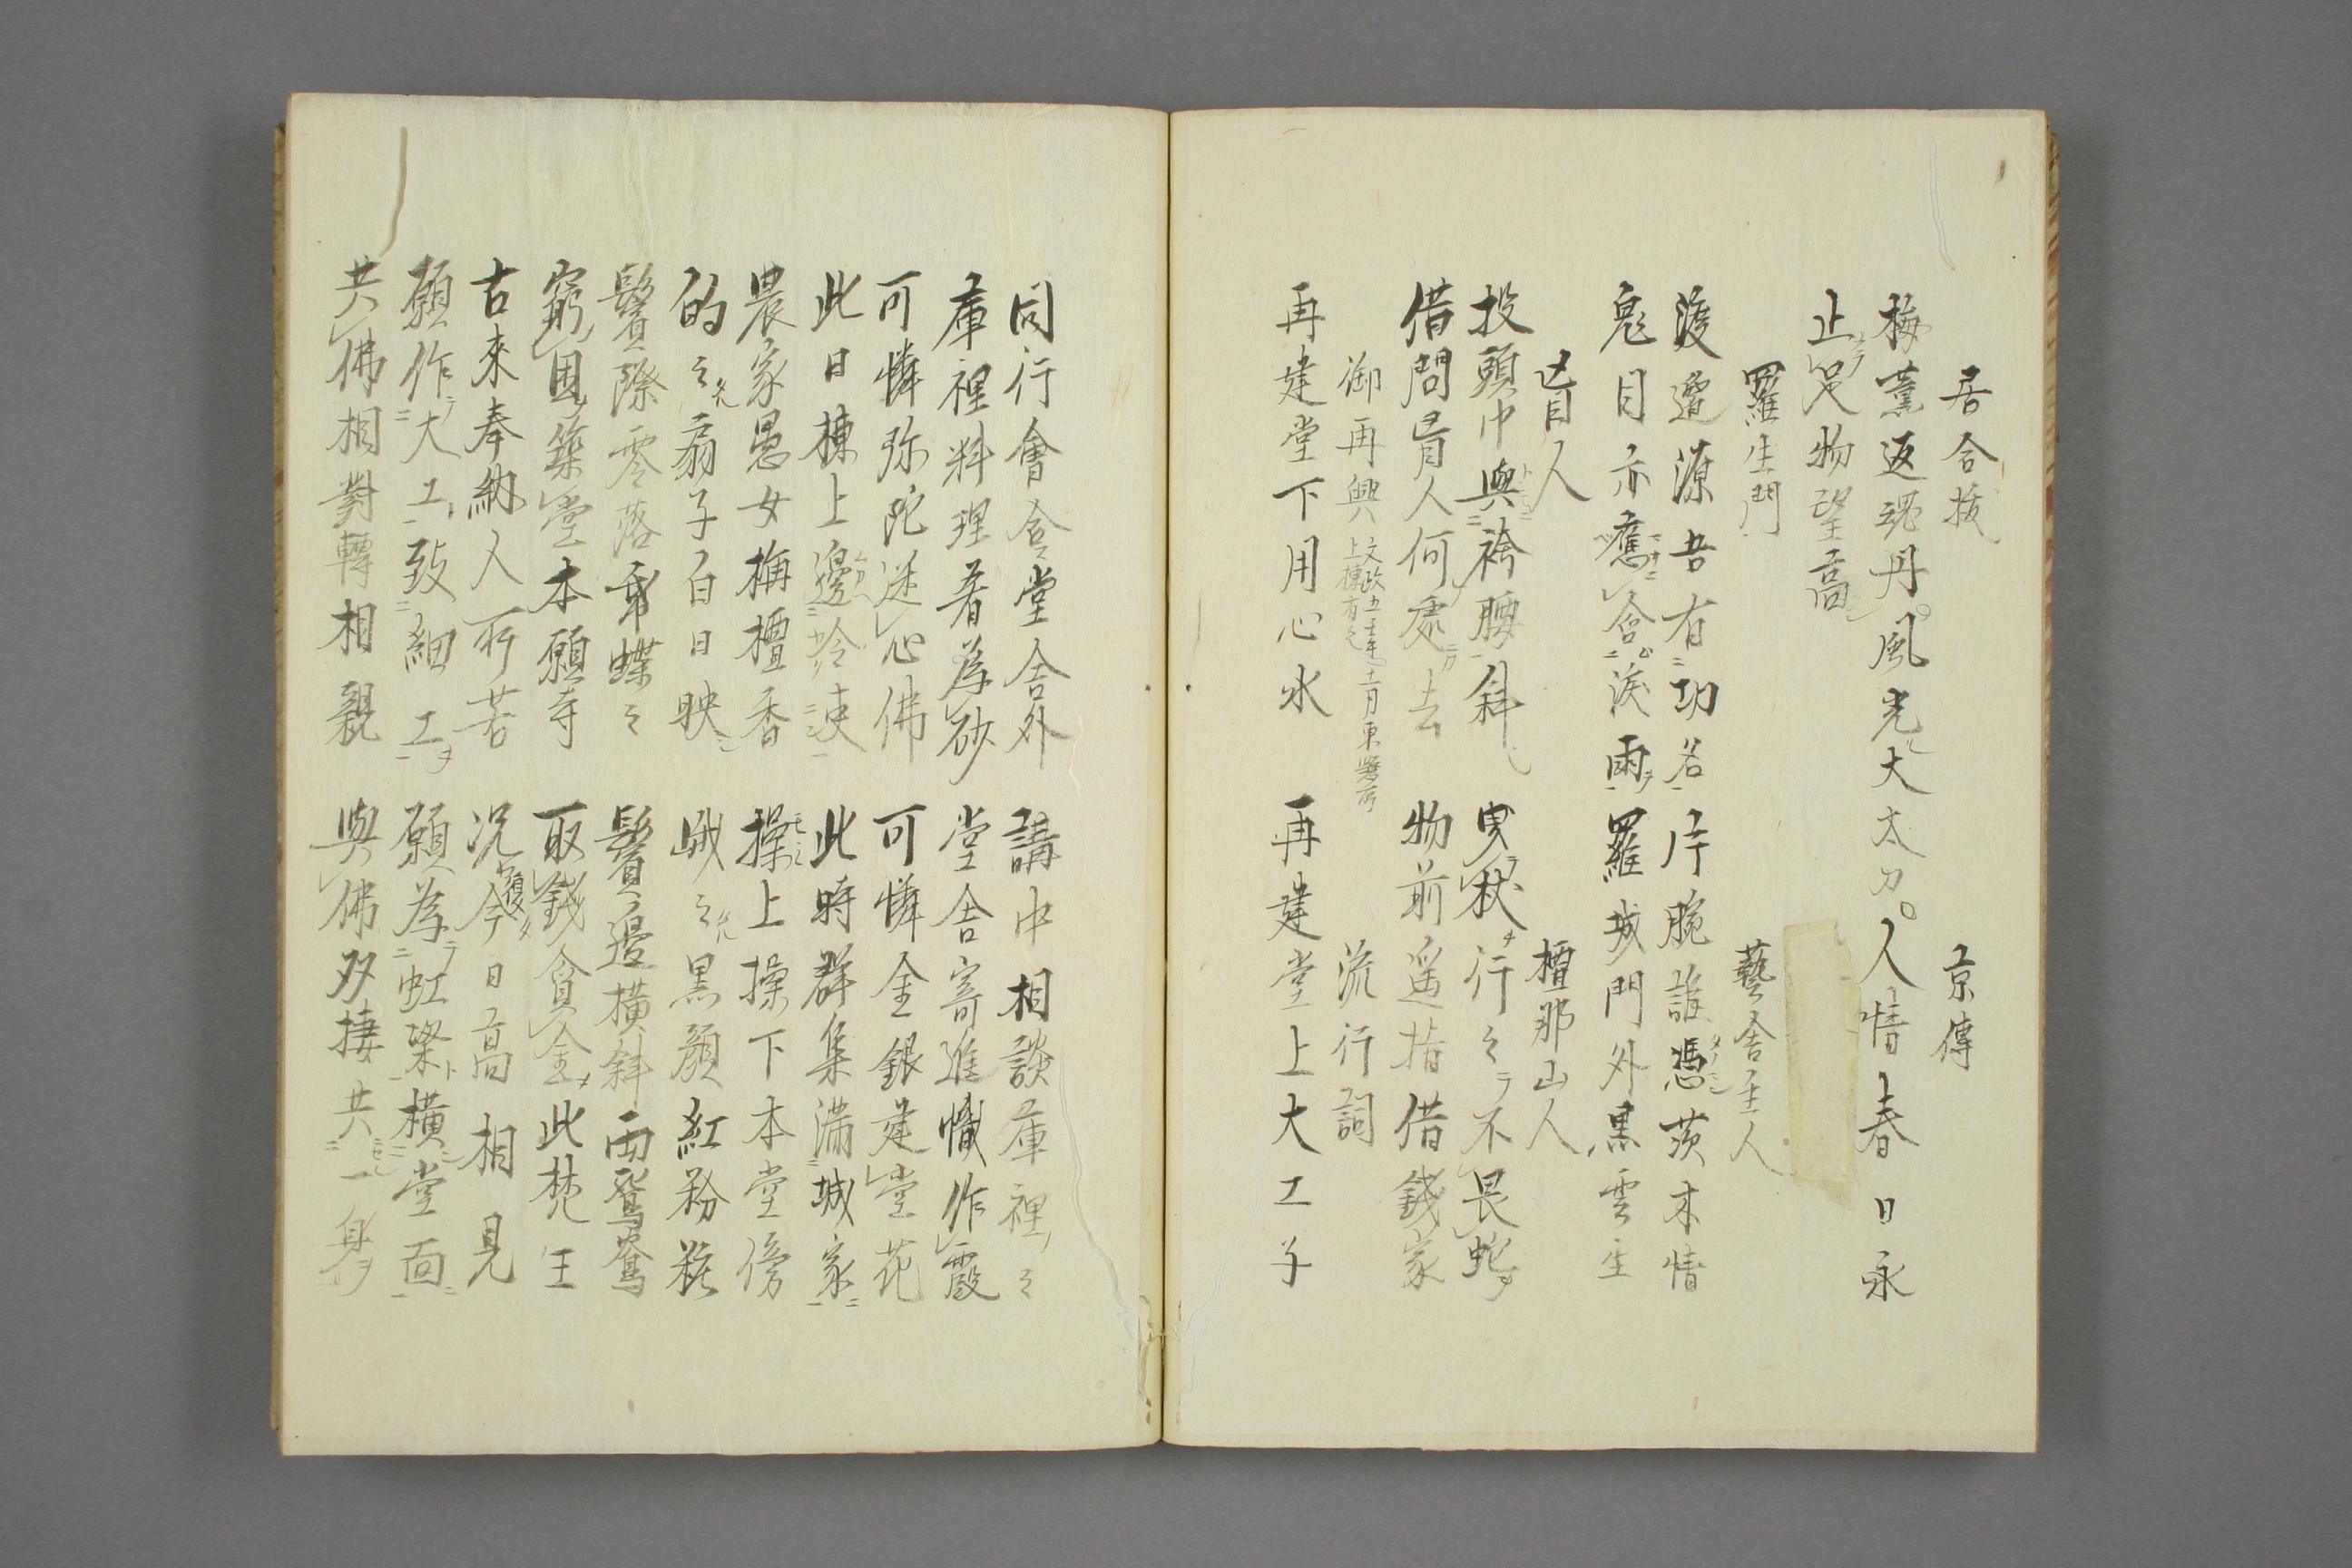 居合抜 京傳
梅薫返魂丹風光大太刀人情春日永
止足物望高
羅生門 藝舎主人
渡邉源吾有功名片腕誰憑茨木情
鬼目亦舊含涙雨羅城門外黒雲生
盲人 檀那山人
投頭巾與袴腰斜曳杖行々不畏蛇
借問盲人何處去物前遥指借錢家
御再興 文政五壬午十一月東 上棟有之 流行詞
再建堂下用心水 再建堂上大工子
同行會合堂舎外 講中相談庫裡々
庫裡料理着為砂 堂舎寄進幟作霞
可憐弥陀迷心佛 可憐金銀建堂花
此日棟上邊 此時群集満城家
農家愚女栴檀香 操上操下本堂傍
的々扇子白日映 峨々黒顔紅粉粧
鬢際零落 蝶々 鬢邉横斜両鴛鴦
窮困築堂本願寺 取錢貪金此梵王
古來奉納人所苦 况復今日高相見
願作大工致細工 願為虹梁横堂面
共佛相對轉相親 與佛双棲共一身